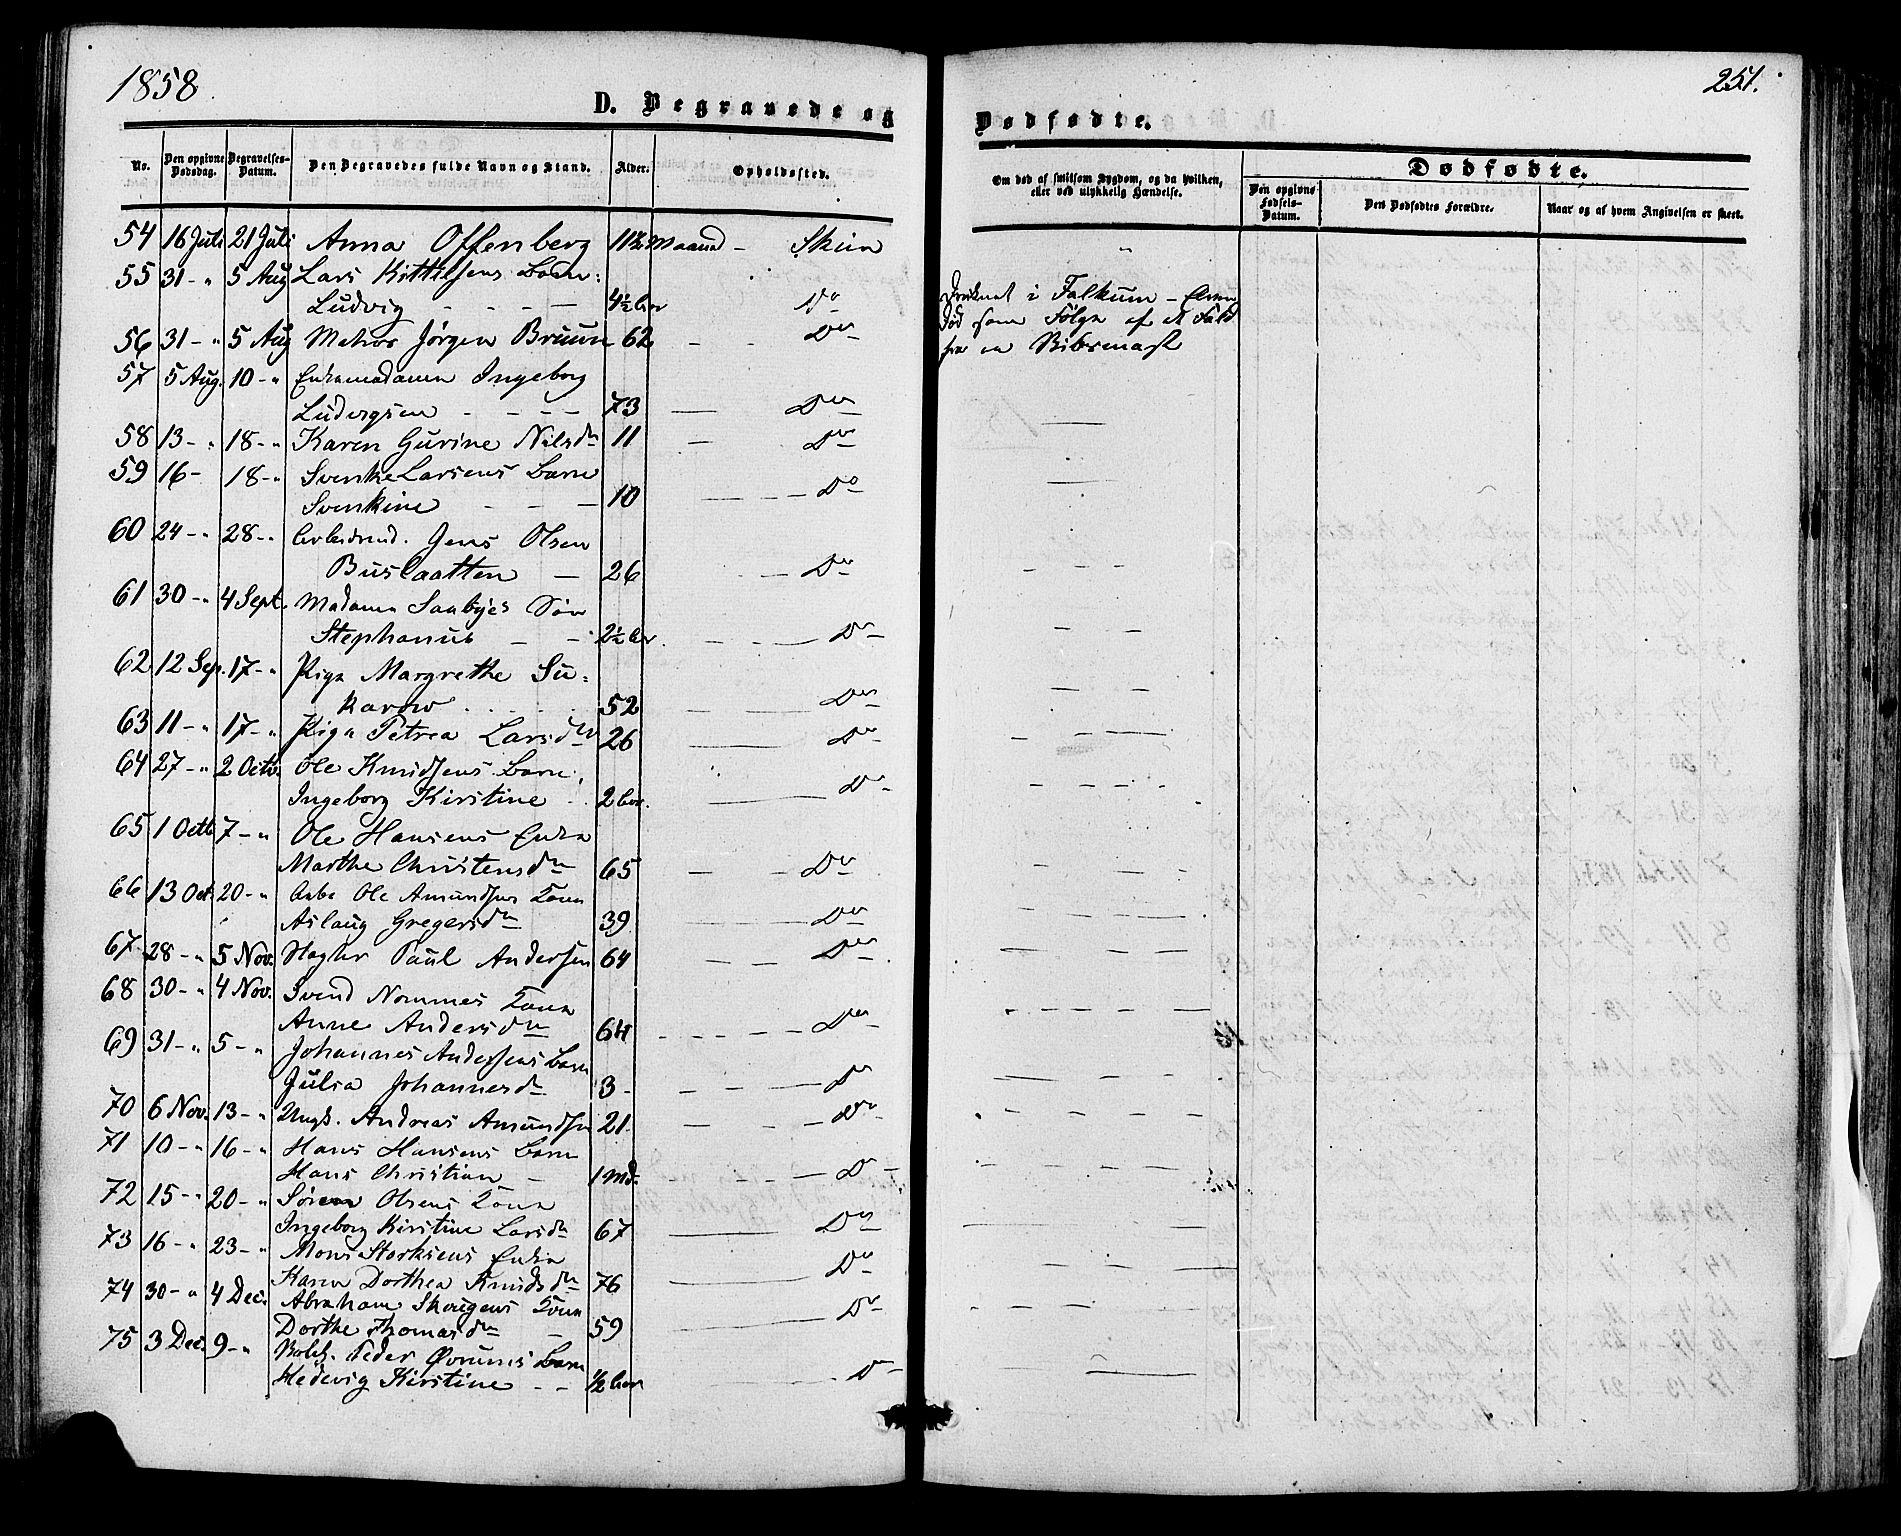 1858
251.
D. Begravede og
Dødfødte.
No. Den opgivne Dødsdag. Begravelses-Datum. Den Begravedes fulde Navn og Stand. Alder. Opholdssted.
Om død af smitsom Sygdom, og da hvilken, eller ved ulykkelig Hændelse.
Dødfødte.
Den opgivne Fødsels-Datum. Den Dødfødtes Forældre. Naar og af hvem Angivelsen er skeet.
54 16 Juli 21 Juli Anna Offenberg 11½ Maaned - Skien "
55 31 - " 5 Aug Lars Kittilsens Barn
Ludvig - - - 4½ Aar Do Druknet i Falkum-
56 31 - " 5 Aug Jørgen Bruun 62 - - Do død som Følge af et Fald
fra en
57 5 Aug. 10 - " Enkemadamen Ingeborg
Ludvigsen - - - - 73 — Do
58 13 - " 18 - " Karen Gurine Nilsdr 11 — Do
59 16 - 18 - " Svenke Larsens Barn
Svenkine - - - 10 — - - Do
60 24 - " 28 - " Arbeidsmd. Jens Olsen
Buslaatten — 26 - — Do
61 30 - " 4 Sept. Madame Saabyes Søn
Stephanus — - 2½ Aar - - — Do
62 12 Sep. 17 - " Pige Margrethe Su-
karow . . . . 52 - — Do
63 11 - " 17 - " Pige Petrea Larsdr 26 — Do
64 27 - " 2 Octb. Ole Knudsens Barn
Ingeborg Kirstine - 2 Aar. — Do
65 1 Octb 7 - " Ole Hansens Enke
Marthe Christensdr 65 - - Do
66 13 Oct. 20 - " Arbs Ole Amundsens Kone
Aslaug Gregersdr 39 — Do
67 28 - " 5 Nov. Paul Andersen 64 — - - Do
68 30 - " 4 Nov. Svend Nommes Kone
Anne Andersdr 64 - - - Do
69 31 - " 5 - " Johannes Andersens Barn
Julia Johannesdr 3 - — - Do
70 6 Nov. 13 - " Ungk. Andreas Amundsen 21. - - - Do
71 10 - " 16 - " Hans Hansens Barn
Hans Christian - 1 Md. - - - Do
72 15 - " 20 - " Søren Olsens Kone
Ingeborg Kirstine Larsdr 67 — Do
73 16 - " 23 - " Mons Storksens Enke
Karen Dorthea Knudsdr 76 — Do
74 30 - " 4 Dec. Abraham Skougens Kone
Dorthe Thomasdr - 59 — Do
75 3 Dec. 9 - " Peder Øvrums Barn
Hedevig Kirstine - - ½ Aar - - - Do